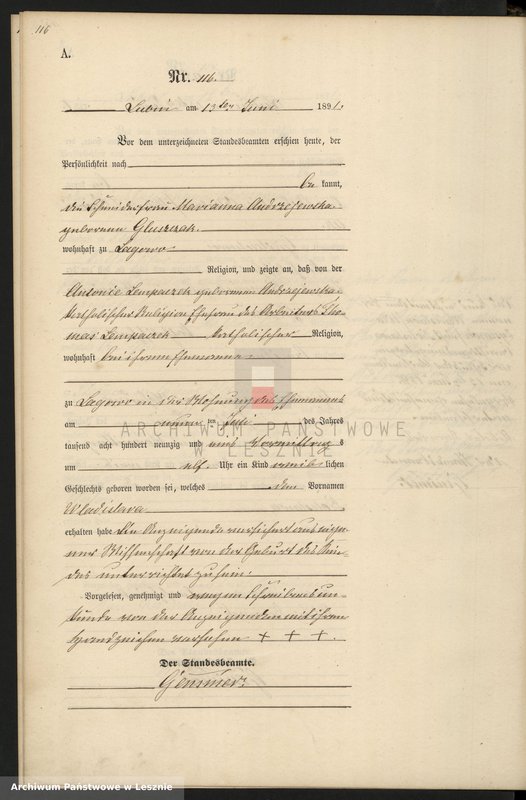 116
A.
Nr. 116.
Lubin am 13ten Juni 1891.
Vor dem unterzeichneten Standesbeamten erschien heute, der
Persönlichkeit nach
be kannt,
die Schneiderfrau Marianna Andrzejewska
geborenen Gluszak
wohnhaft zu Lagowo
Religion, und zeigte an, daß von der
Antonie Lempaszek geborenen Andrzejewska
katholischer Religion Ehefrau des Arbeiters Tho-
mas Lempaszek katholischer Religion,
wohnhaft bei ihrem Ehemanne
zu Lagowo in der Wohnung des Ehemannes
am neunten Juni des Jahres
tausend acht hundert neunzig und eins Vormittag s
um elf Uhr ein Kind weib lichen
Geschlechts geboren worden sei, welches den Vornamen
Wladislava
erhalten habe Die Anzeigende versichert aus eige-
ner Wissenschaft von der Geburt des Kin-
des unterrichtet zu sein.
Vorgelesen, genehmigt und wegen Schreibensun-
kunde von der Anzeigenden mit ihrem
Handzeichen versehen + + + .
Der Standesbeamte.
ARCHIWUM PAŃSTWOWE
W LESZNIE
Archiwum Państwowe w Lesznie